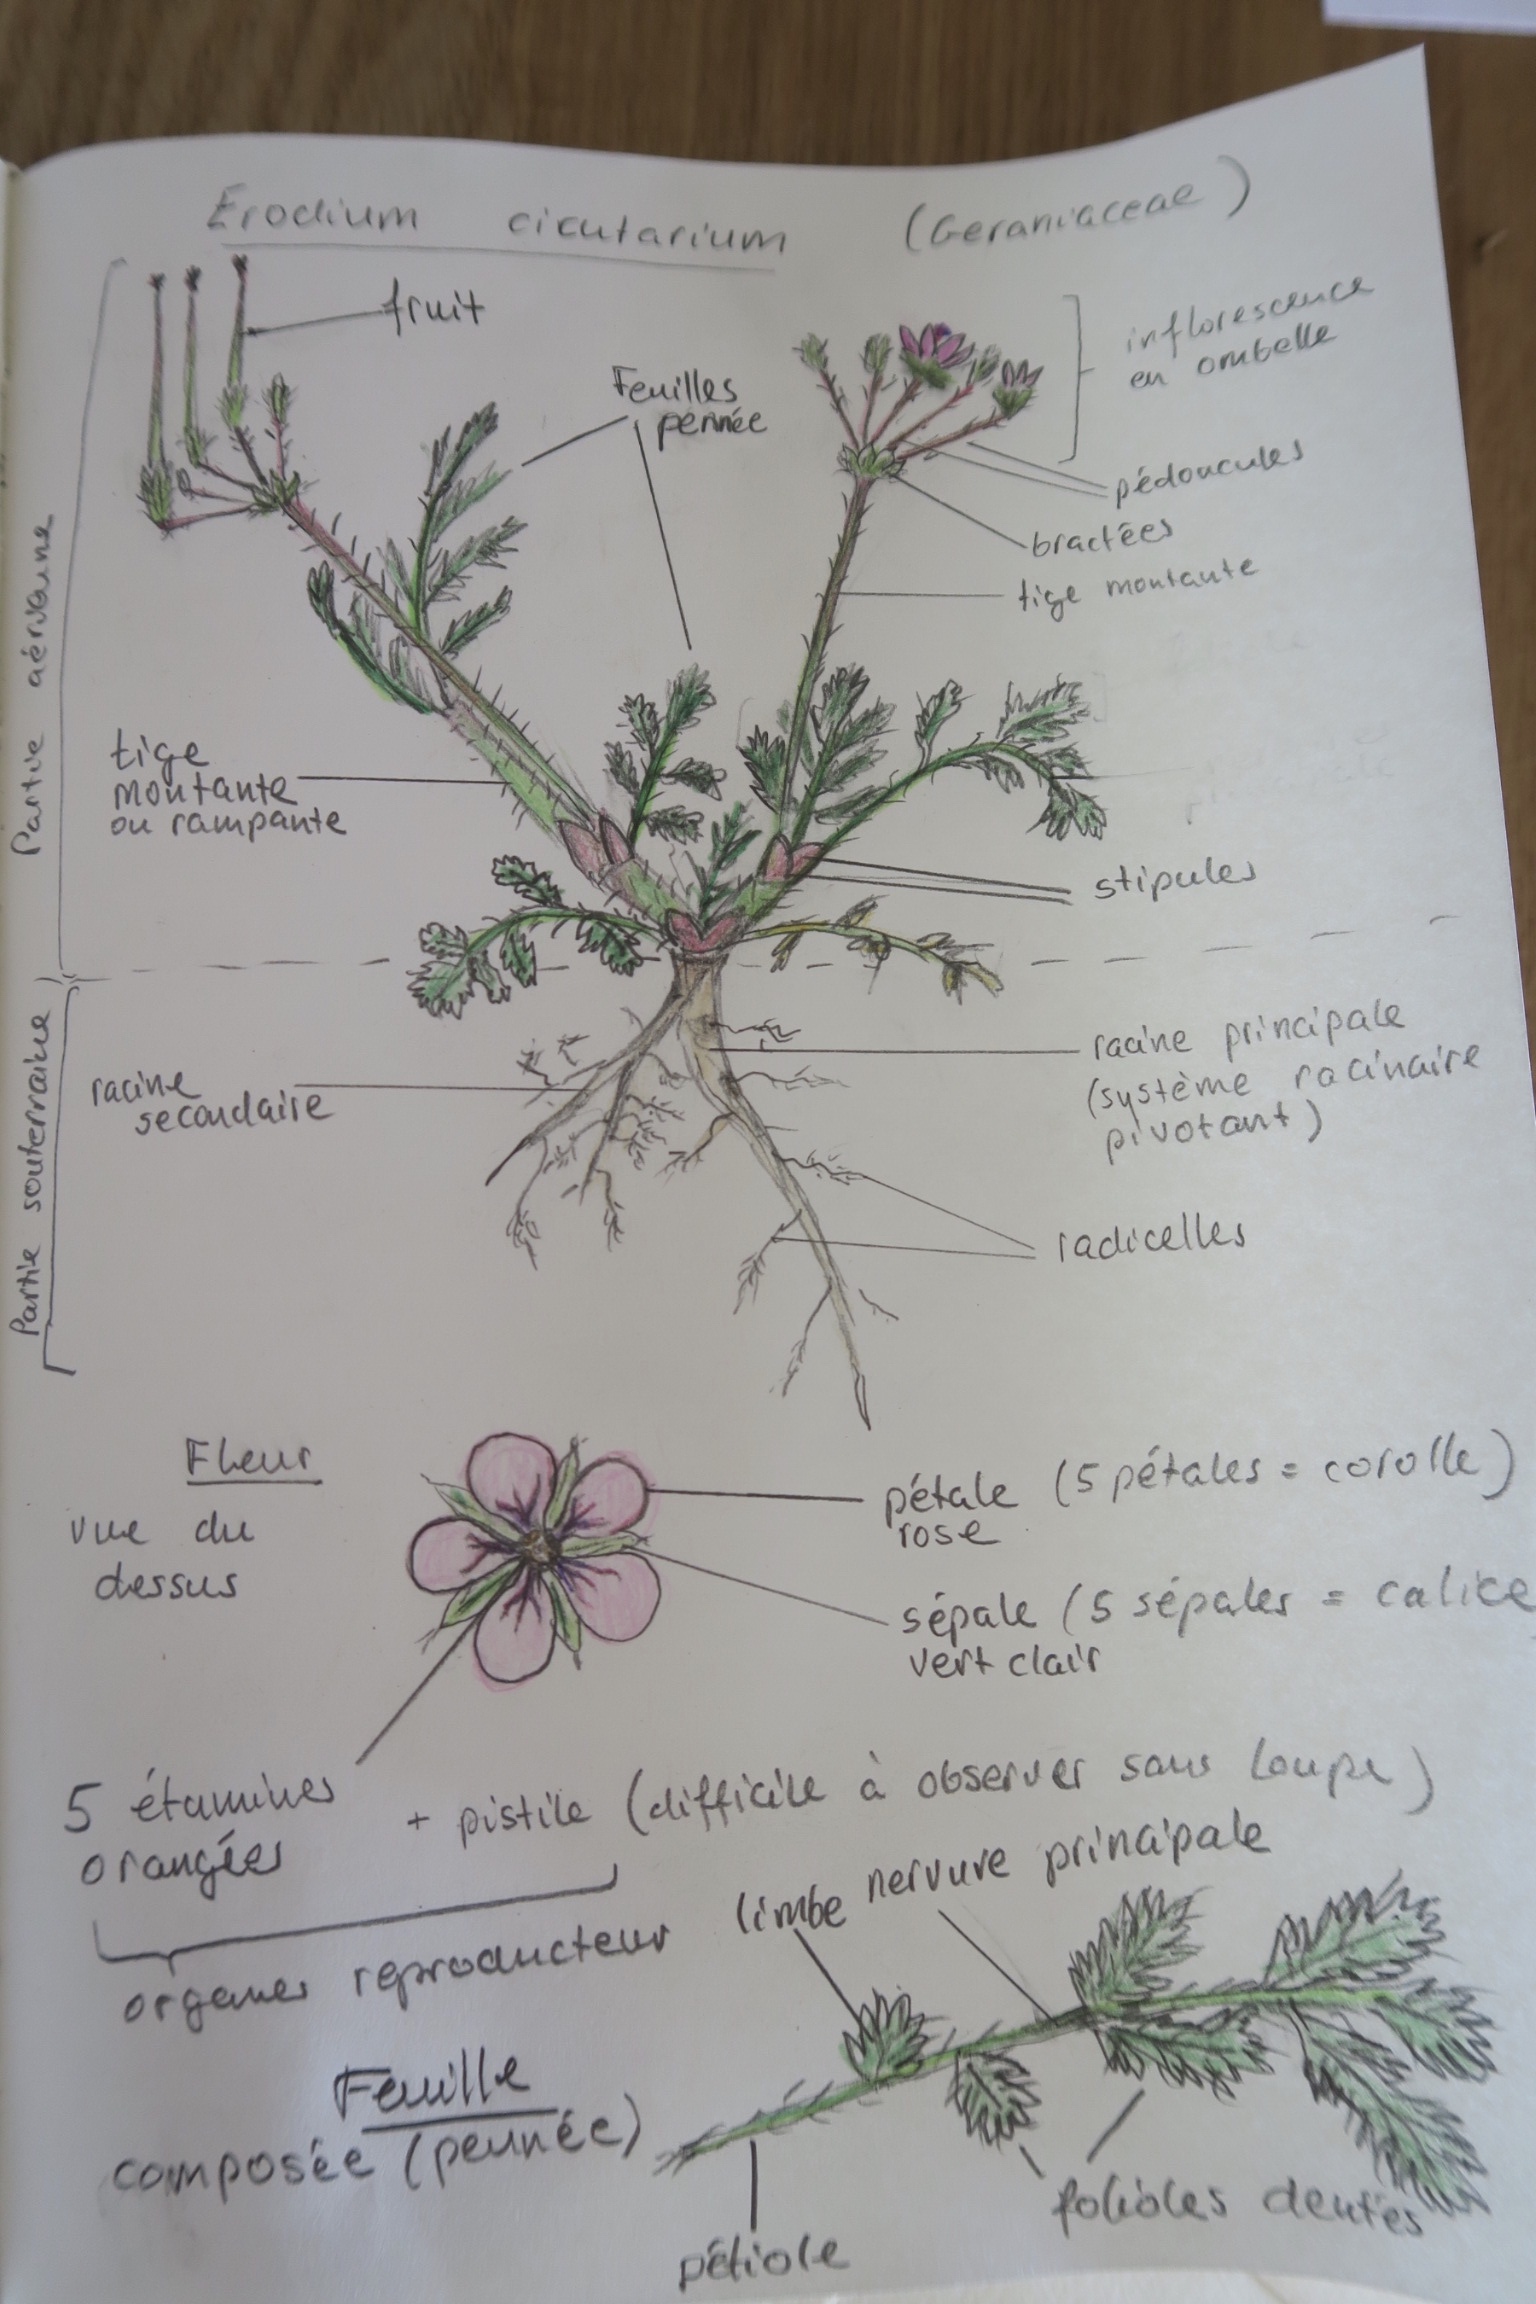 Erodium cicutarium (Geraniaceae)
fruit
Feuilles
pennée
inflorescence
en ombelle
pédoncules
bractées
tige montante
Partie aérienne
tige
montante
ou rampante
stipules
Partie souterraine
racine
secondaire
racine principale
(système racinaire
pivotant)
radicelles
Fleur
vue du
dessus
pétale (5 pétales = corolle)
rose
sépale (5 sépales = calice
vert clair
5 étamines + pistile (difficile à observer sans loupe)
orangées
organes reproducteur
limbe nervure principale
Feuille
composée (pennée)
folioles dentés
pétiole